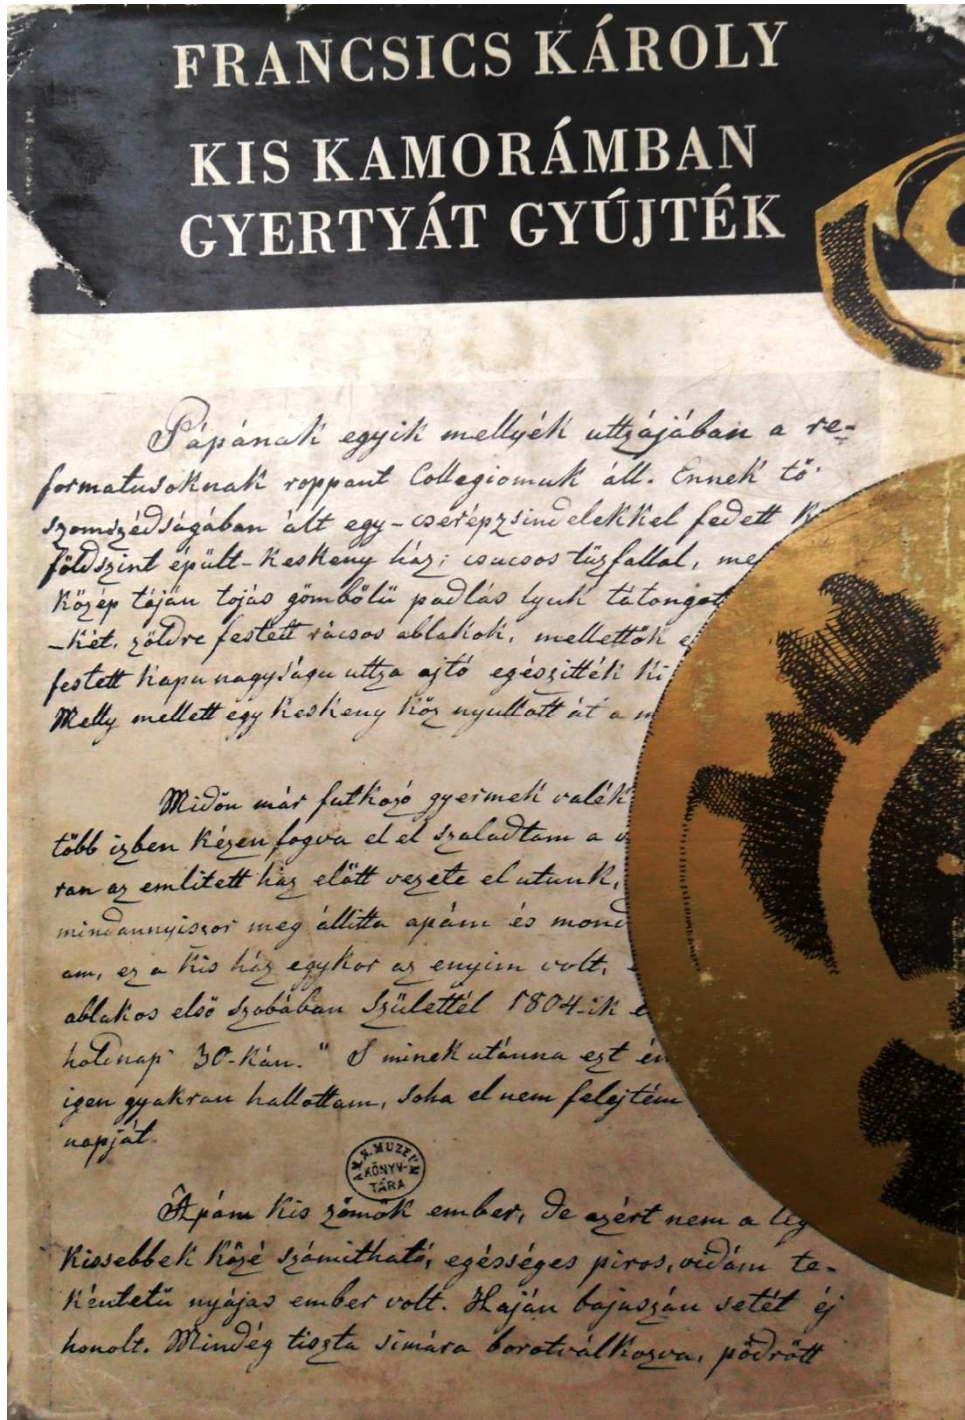 FRANCSICS KÁROLY
KIS KAMORÁMBAN
GYERTYÁT GYÚJTÉK
Pápának egyik mellyék uttzájában a re-
formatusoknak roppant Collegiomuk áll. Ennek tő
szomszédságában ált egy-cserépzsindelekkel fedett
földszint épült-keskeny ház; csucsos tüzfallal,
közép táján tojás gömbölü padlás lyuk tátongot
-két, zöldre festett rácsos ablakok, mellettök
festett kapu nagyságu uttza ajtó egészitték ki
Melly mellett egy keskeny köz nyullott át a
Midőn már futkozó gyermek valék
több izben kézen fogva el el szaladtam a
ran az emlitett ház előtt vezete el utunk,
mindannyiszor meg állitta apám és mond
am, ez a kis ház egykor az enyim volt,
ablakos első szobában születtél 1804-ik
holdnap 30-kán." S minekutánna ezt én
igen gyakran hallottam, soha el nem felejtém
napját.
MUZEUM
KÖNYV-
TÁRA
Apám kis zömök ember, de azért nem a leg
kissebbek közé számitható, egésséges piros, vidám te-
kéntetü nyájas ember volt. Haján bajuszán setét éj
honolt. Mindég tiszta simára borotválkozva, pödrött